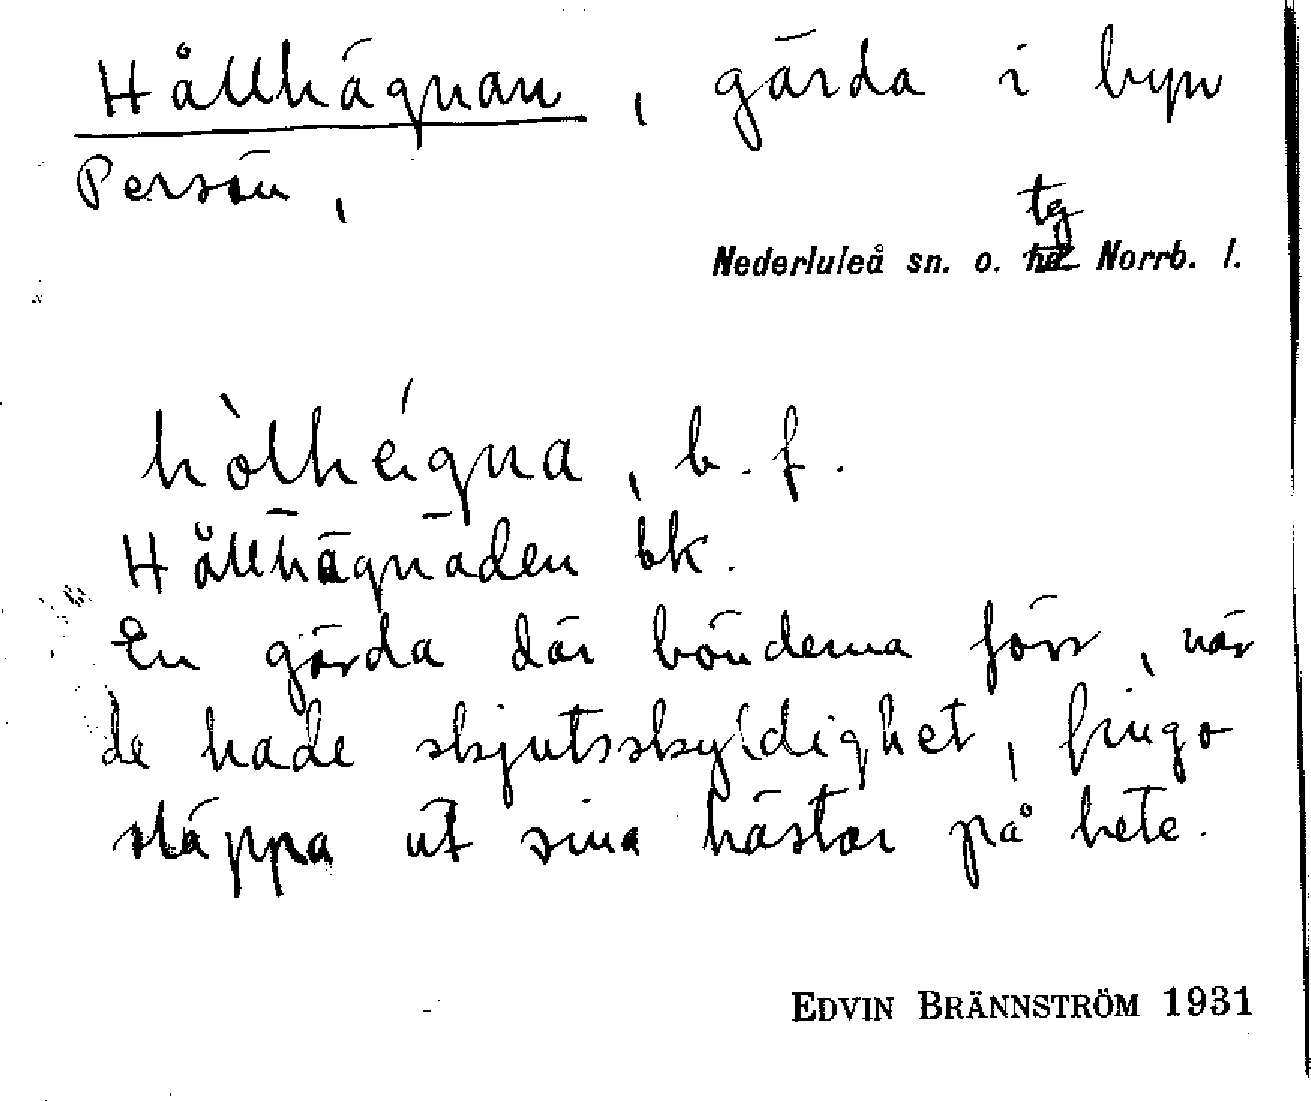 Hållhägnan, gärda i byn
Persön,
tg
Nederluleå sn. o. hd Norrb. l.
hòlhégna, b. f.
Hållhägnaden bk.
En gärda där bönderna förr, när
de hade skjutsskyldighet, fingo
släppa ut sina hästar på bete.
EDVIN BRÄNNSTRÖM 1931